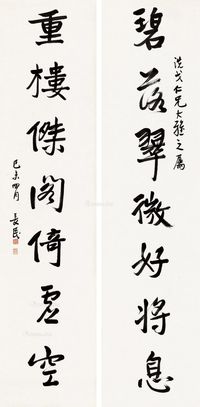 洗戈仁兄大雅之屬
碧落翠微好將息
重樓傑閣倚虛空
己未四月 長民